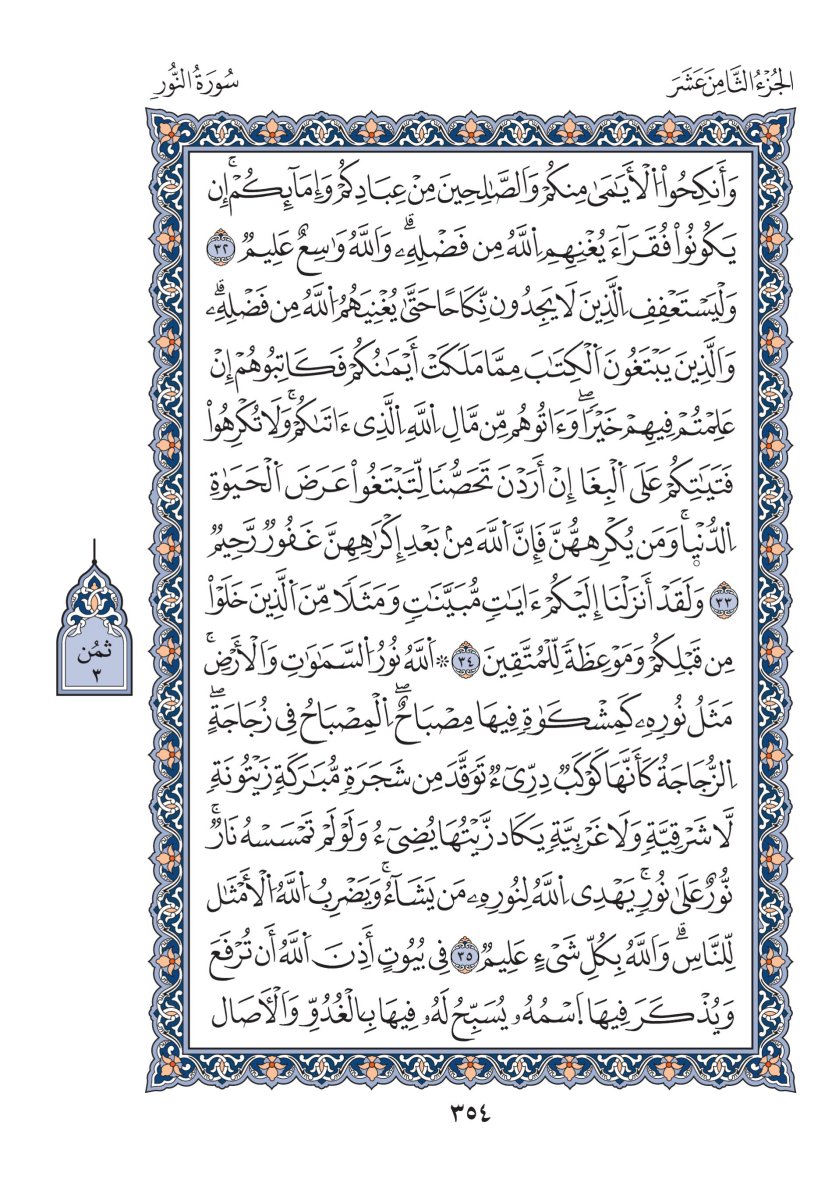 الجُزْءُ الثَّامِنَ عَشَرَ
سُورَةُ النُّورِ
وَأَنكِحُواْ اُلْأَيَٰمَىٰ مِنكُمْ وَالصَّٰلِحِينَ مِنْ عِبَادِكُمْ وَإِمَآئِكُمْۚ إِن
يَكُونُواْ فُقَرَآءَ يُغْنِهِمِ اِللَّهُ مِن فَضْلِهِۦۗ وَاللَّهُ وَٰسِعٌ عَلِيمٌ ٣٢
وَلْيَسْتَعْفِفِ اِلَّذِينَ لَا يَجِدُون نِّكَاحًا حَتَّىٰ يُغْنِيَهُمُ اُللَّهُ مِن فَضْلِهِۦۗ
وَالَّذِينَ يَبْتَغُونَ اَلْكِتَٰبَ مِمَّا مَلَكَتْ أَيْمَٰنُكُمْ فَكَاتِبُوهُمْ إِنْ
عَلِمْتُمْ فِيهِمْ خَيْرًاۖ وَءَاتُوهُم مِّن مَّالِ اِللَّهِ اِلَّذِى ءَاتَىٰكُمْۚ وَلَا تُكْرِهُواْ
فَتَيَٰتِكُمْ عَلَى اَلْبِغَا إِنْ أَرَدْنَ تَحَصُّنًا لِّتَبْتَغُواْ عَرَضَ اَلْحَيَوٰةِ
اِلدُّنْيٜاۚ وَمَن يُكْرِههُّنَّ فَإِنَّ اَللَّهَ مِنۢ بَعْدِ إِكْرَٰهِهِنَّ غَفُورٌ رَّحِيمٌ
٣٣ وَلَقَدْ أَنزَلْنَا إِلَيْكُمْ ءَايَٰتٍ مُّبَيَّنَٰتٍ وَمَثَلًا مِّنَ اَلَّذِينَ خَلَوْاْ
مِن قَبْلِكُمْ وَمَوْعِظَةً لِّلْمُتَّقِينَ ٣٤ ۞ اَللَّهُ نُورُ اُلسَّمَٰوَٰتِ وَالْأَرْضِۚ
ثمُن
٣
مَثَلُ نُورِهِۦ كَمِشْكَوٰةٍ فِيهَا مِصْبَاحٌۖ اِلْمِصْبَاحُ فِى زُجَاجَةٍۖ
اِلزُّجَاجَةُ كَأَنَّهَا كَوْكَبٌ دِرِّىٓءٌ تَوَقَّدَ مِن شَجَرَةٍ مُّبَٰرَكَةٍ زَيْتُونَةٍ
لَّا شَرْقِيَّةٍ وَلَا غَرْبِيَّةٍ يَكَاد زَّيْتُهَا يُضِىٓءُ وَلَوْ لَمْ تَمْسَسْهُ نَارٌۚ
نُّورٌ عَلَىٰ نُورٍۚ يَهْدِى اِللَّهُ لِنُورِهِۦ مَن يَشَآءُۚ وَيَضْرِبُ اُللَّهُ اُلْأَمْثَٰل
لِّلنَّاسِۗ وَاللَّهُ بِكُلِّ شَىْءٍ عَلِيمٌ ٣٥ فِى بُيُوتٍ أَذِنَ اَللَّهُ أَن تُرْفَعَ
وَيُذْكَرَ فِيهَا اَسْمُهُۥ يُسَبِّحُ لَهُۥ فِيهَا بِالْغُدُوِّ وَالْأٓصَال
٣٥٤